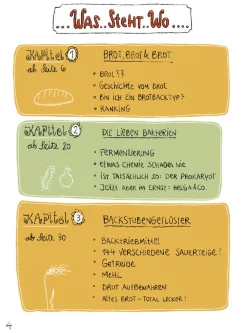 ...Was..Steht..Wo....
Kapitel 1
ab Seite 6
BROT, BROT & BROT
• BROT??
• Geschichte vom BROT
• Bin ich ein BROTBACKTYP?
• RANKING
Kapitel 2
ab Seite 20
DIE LIEBEN BAKTERIEN
• FERMENTIERUNG
• ETWAS CHEMIE SCHADET NIE
• IST TATSÄCHLICH SO: DER PROKARYOT
• JETZT ABER IM ERNST: HELGA & CO.
Kapitel 3
ab Seite 30
BACKSTUBENGEFLÜSTER
• BACKTRIEBMITTEL
• 144 VERSCHIEDENE SAUERTEIGE!
• GETREIDE
• MEHL
• BROT AUFBEWAHREN
• ALTES BROT - TOTAL LECKER!
4